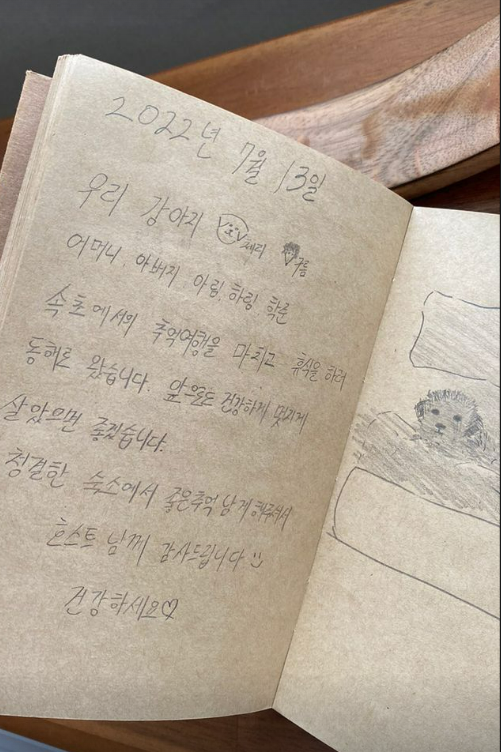 2022년 7월 13일
우리 강아지 제리 구름
어머니 아버지 아림 하림 학준
속초에서의 추억여행을 마치고 휴식을 하러
동해로 왔습니다. 앞으로도 건강하게 멋지게
살았으면 좋겠습니다.
청결한 숙소에서 좋은추억 남게해주셔서
호스트님께 감사드립니다
건강하세요♡